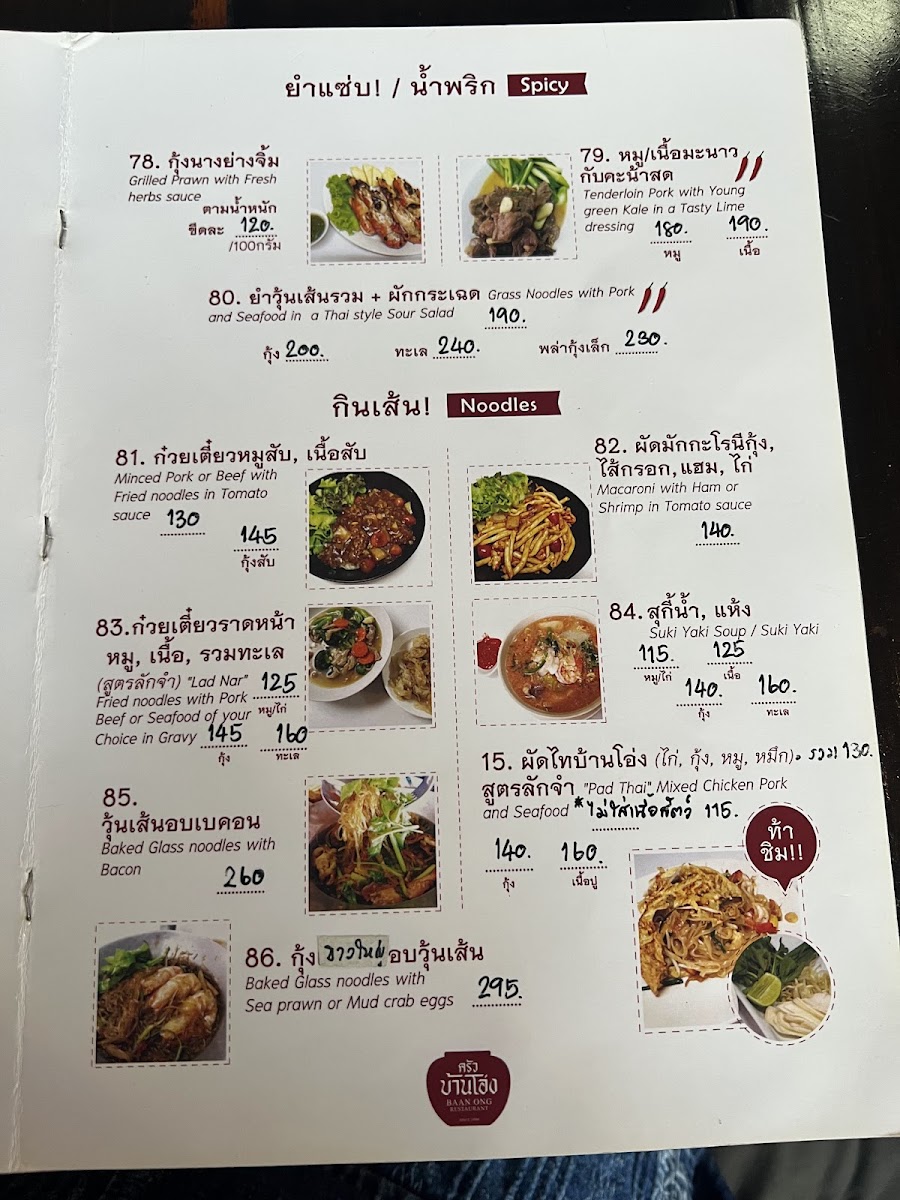 ยำแซ่บ! / น้ำพริก Spicy
78. กุ้งนางย่างจิ้ม
Grilled Prawn with Fresh
herbs sauce
ตามน้ำหนัก
ขีดละ 120.
/100กรัม
79. หมู/เนื้อมะนาว
กับคะน้าสด
Tenderloin Pork with Young
green Kale in a Tasty Lime
dressing 180. 190.
หมู เนื้อ
80. ยำวุ้นเส้นรวม + ผักกระเฉด Grass Noodles with Pork
and Seafood in a Thai style Sour Salad 190.
กุ้ง 200. ทะเล 240. พล่ากุ้งเล็ก 230.
กินเส้น! Noodles
81. ก๋วยเตี๋ยวหมูสับ, เนื้อสับ
Minced Pork or Beef with
Fried noodles in Tomato
sauce 130
145
กุ้งสับ
82. ผัดมักกะโรนีกุ้ง,
ไส้กรอก, แฮม, ไก่
Macaroni with Ham or
Shrimp in Tomato sauce
140.
83.ก๋วยเตี๋ยวราดหน้า
หมู, เนื้อ, รวมทะเล
(สูตรลักจำ) "Lad Nar" 125
Fried noodles with Pork หมู/ไก่
Beef or Seafood of your
Choice in Gravy 145 160
กุ้ง ทะเล
84. สุกี้น้ำ, แห้ง
Suki Yaki Soup / Suki Yaki
115. 125
หมู/ไก่ เนื้อ
140. 160.
กุ้ง ทะเล
85.
วุ้นเส้นอบเบคอน
Baked Glass noodles with
Bacon
260
15. ผัดไทบ้านโอ่ง (ไก่, กุ้ง, หมู, หมึก). รวม 130.
สูตรลักจำ "Pad Thai" Mixed Chicken Pork
and Seafood *ไม่ใส่เนื้อสัตว์ 115.
140. 160.
กุ้ง เนื้อปู
ท้า
ชิม!!
86. กุ้งขาวใหญ่อบวุ้นเส้น
Baked Glass noodles with
Sea prawn or Mud crab eggs 295.
ครัว
บ้านโอ่ง
BAAN ONG
RESTAURANT